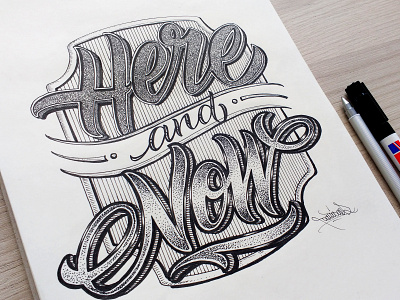 Here
and
Now